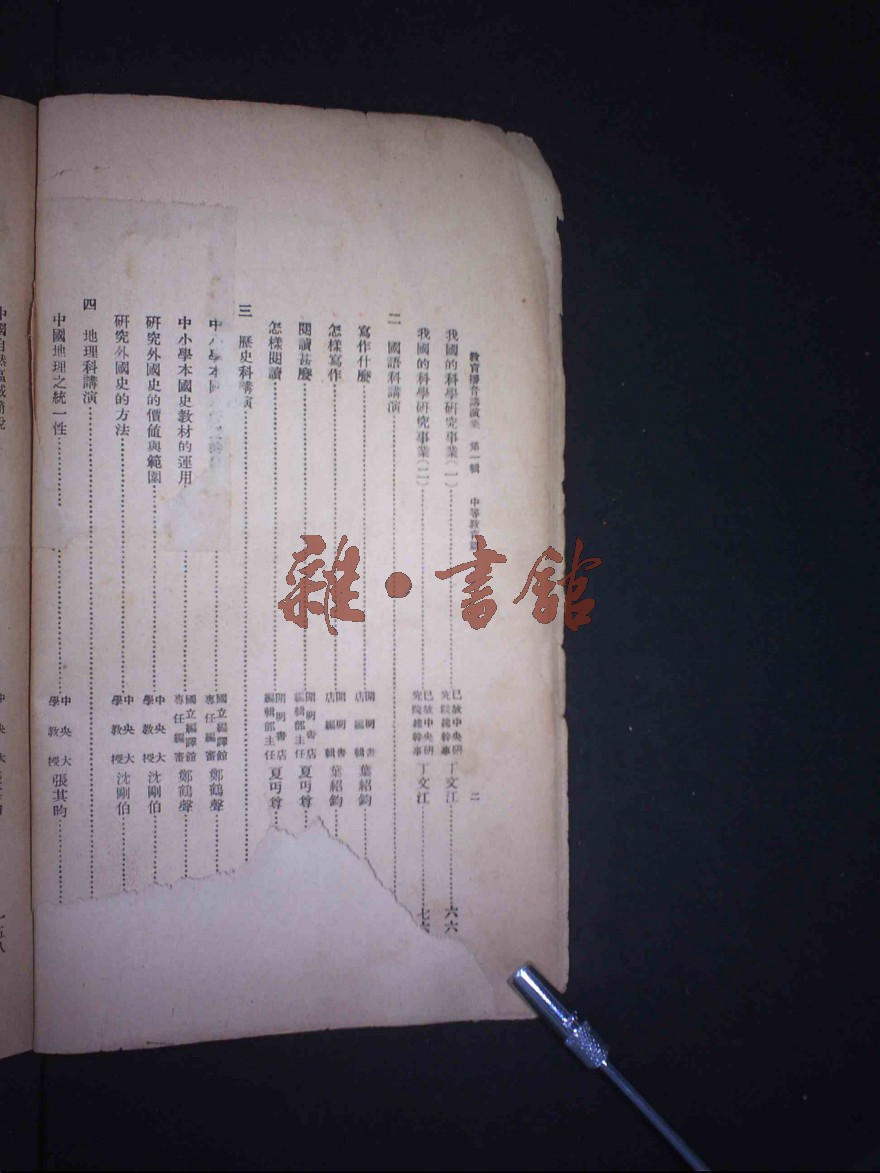 教育播音講演集 第一輯 中等教育
二
我國的科學研究事業(一)……已故中央研究院總幹事 丁文江……六六
我國的科學研究事業(二)……已故中央研究院總幹事 丁文江……七六
二 國語科講演……
寫作什麼……開明書店編輯 葉紹鈞……
怎樣寫作……開明書店編輯 葉紹鈞……
閱讀甚麼……開明書店編輯部主任 夏丏尊……
怎樣閱讀……開明書店編輯部主任 夏丏尊……
三 歷史科講演……
中小學本國……國立編譯館專任編審 鄭鶴聲……
中小學本國史教材的運用……國立編譯館專任編審 鄭鶴聲……
研究外國史的價值與範圍……中央大學教授 沈剛伯……
研究外國史的方法……中央大學教授 沈剛伯……
四 地理科講演……
中國地理之統一性……中央大學教授 張其昀……
中國自然區域簡說
一五八
雜·書館